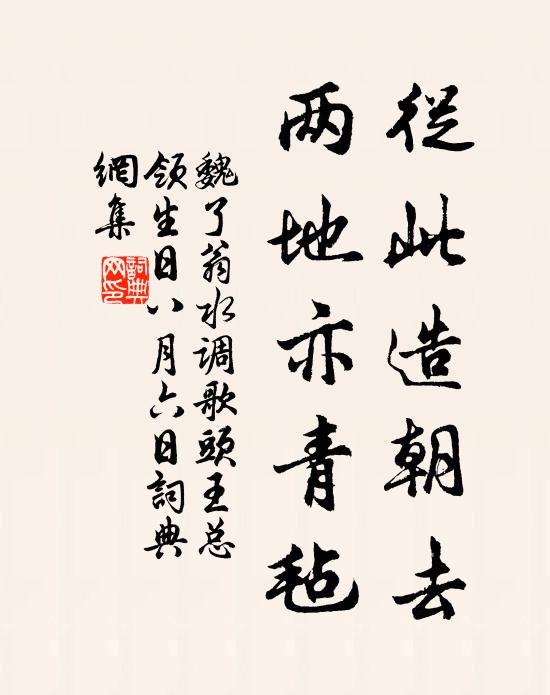 從此造朝去
两地亦青毡
魏了翁水调歌頭王总
领生日八月六日詞典
網集
詞典网印